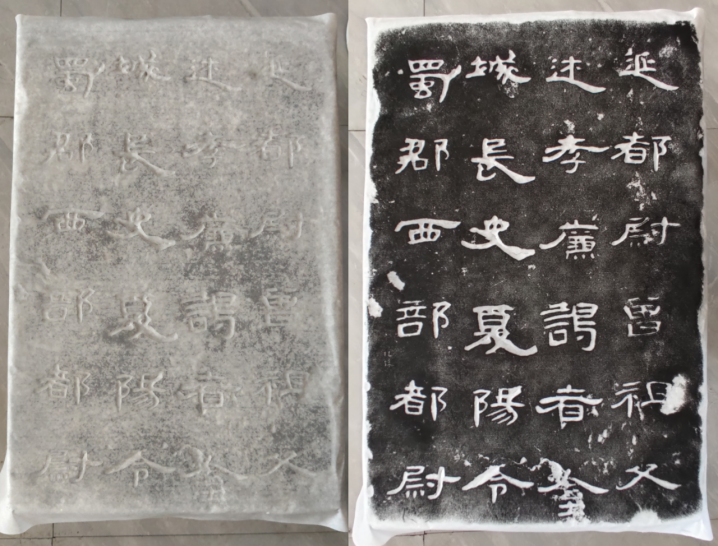 延都尉曾祖父
述孝廉謁者金
城長史夏陽令
蜀郡西部都尉
延都尉曾祖父
述孝廉謁者金
城長史夏陽令
蜀郡西部都尉